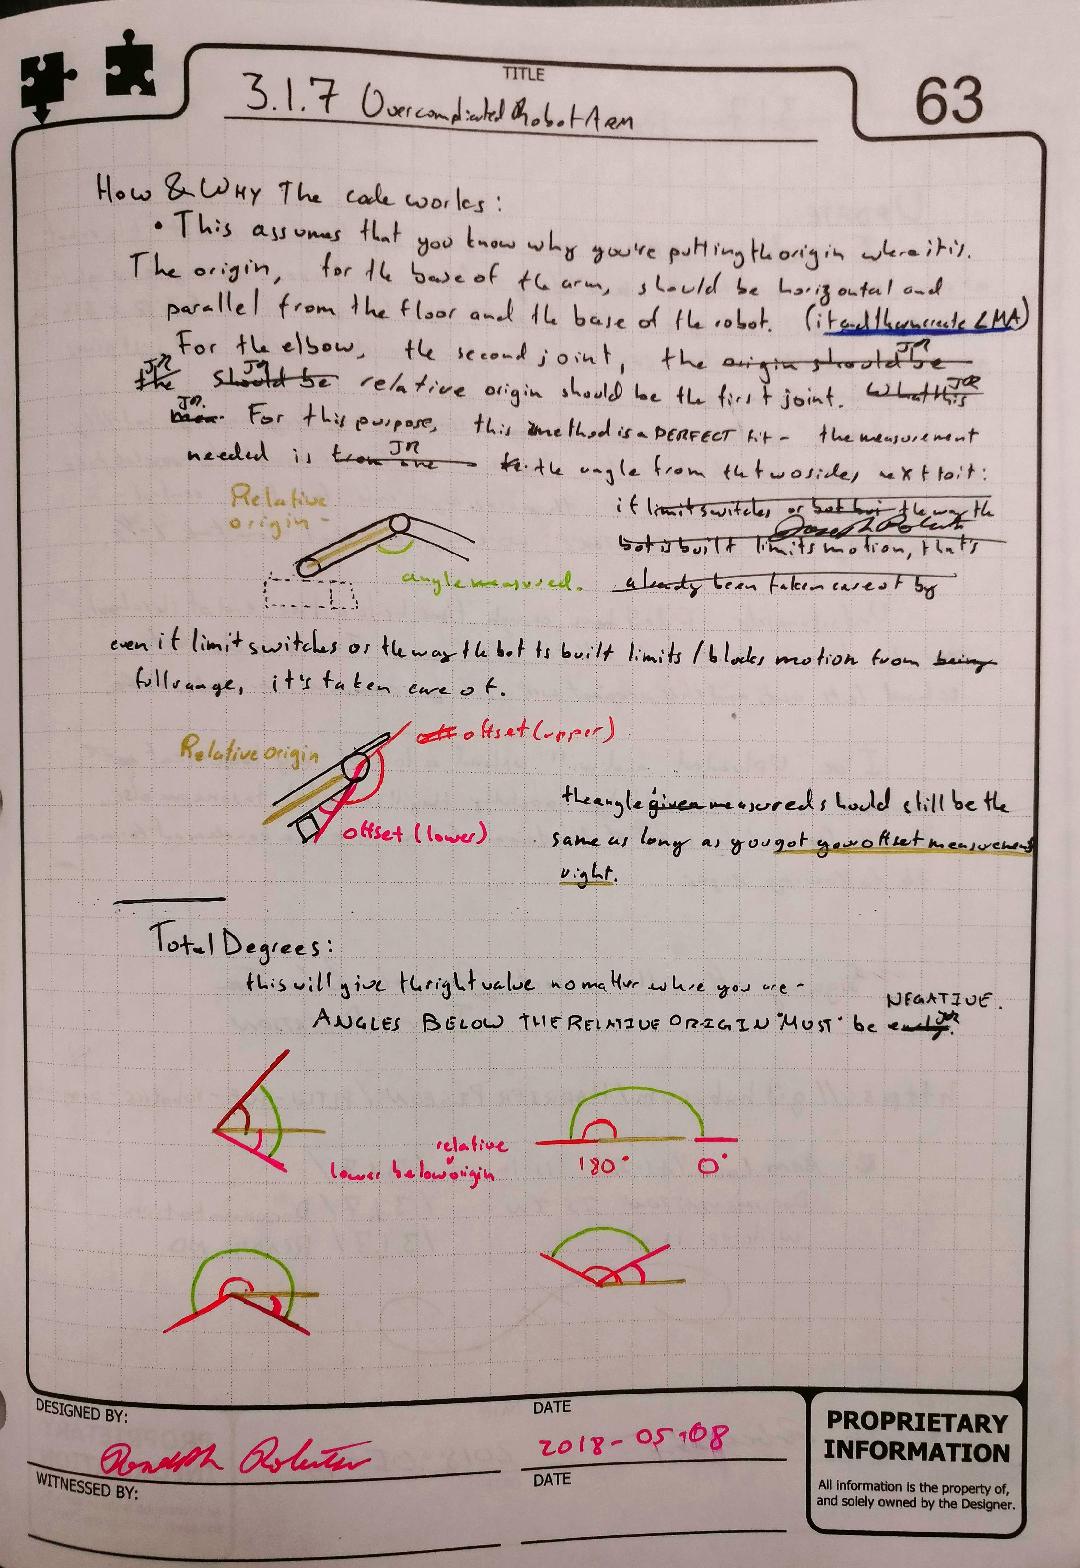 TITLE
3.1.7 Overcomplicated Robot Arm
63
How & Why The code works:
• This assumes that you know why you're putting the origin where it is.
The origin, for the base of the arm, should be horizontal and
parallel from the floor and the base of the robot. (it and then create LMA)
For the elbow, the second joint, the origin should be JR
JR the JR should be relative origin should be the first joint. JR What this
JR For this purpose, this method is a PERFECT fit - the measurement
needed is JR the angle from the two sides next to it:
Relative
origin -
angle measured.
if limit switches or bot the way the
bot is built limits motion, that's
already been taken care of by
even if limit switches or the way the bot is built limits / blocks motion from being
full range, it's taken care of.
Relative origin
offset (upper)
offset (lower)
the angle given measured should still be the
same as long as you got your offset measurement
right.
Total Degrees:
this will give the right value no matter where you are -
NEGATIVE.
ANGLES BELOW THE RELATIVE ORIGIN "MUST" be JR
relative
lower below origin
180°
0°
DESIGNED BY:
DATE
2018-05-08
WITNESSED BY:
DATE
PROPRIETARY
INFORMATION
All information is the property of,
and solely owned by the Designer.